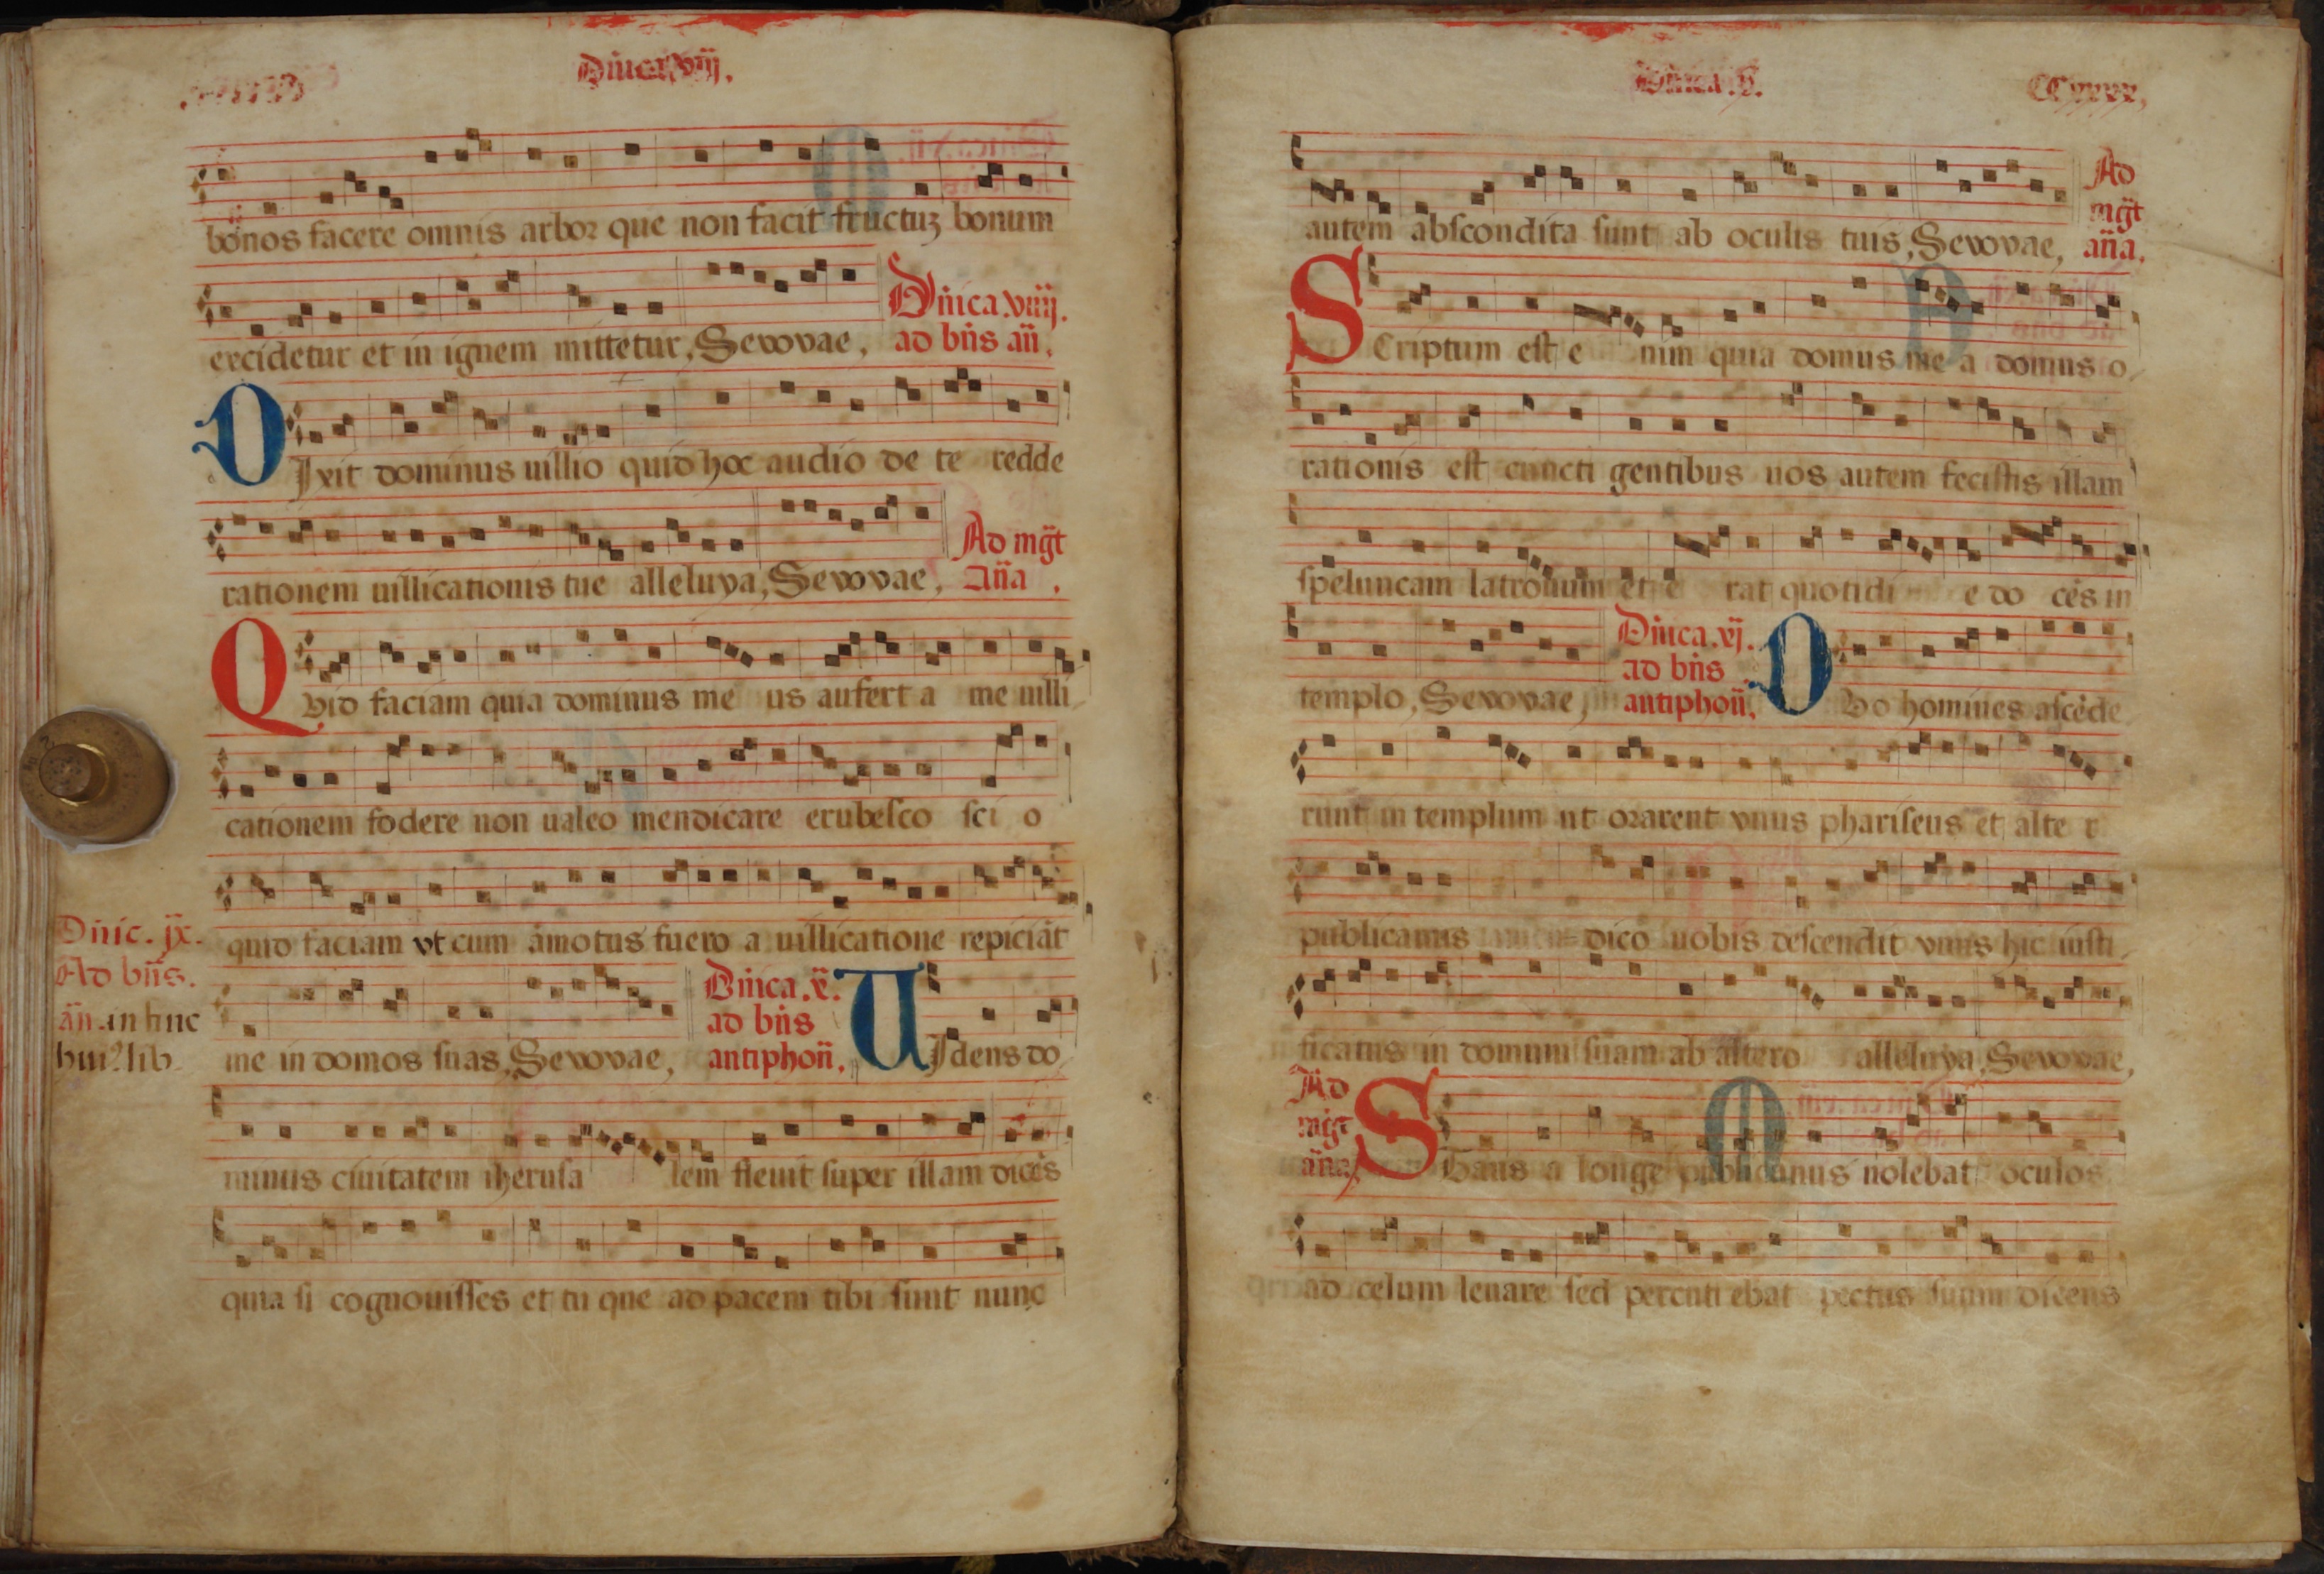 Dñica .viij.
bonos facere omnis arbor que non facit fructuȝ bonum
excidetur et in ignem mittetur, Seuouae,
Dñica .viiij.
ad bñs añ.
DIxit dominus uillico quid hoc audio de te redde
rationem uillicationis tue alleluya, Seuouae,
Ad mg̃t
Aña.
QVid faciam quia dominus me us aufert a me uilli
cationem fodere non ualeo mendicare erubesco sci o
quid faciam vt cum amotus fuero a uillicatione repiciãt
Dñic. jx.
Ad bñs.
me in domos suas, Seuouae,
Dñica .x.
ad bñs
antiphoñ.
UIdens do
minus ciuitatem iherusa lem fleuit super illam dicẽs
quia si cognouisses et tu que ad pacem tibi sunt nunc
Dñica .x.
CCxxxx,
autem abscondita sunt ab oculis tuis, Seuouae,
Ad
mg̃t
aña.
SCriptum est e nim quia domus me a domus o
rationis est cuncti gentibus uos autem fecistis illam
speluncam latronum et e rat quotidi e do cẽs in
templo, Seuouae,
Dñica .xj.
ad bñs
antiphoñ.
DVo homines ascẽde
runt in templum ut orarent vnus phariseus et alte r
publicanus dico uobis descendit vnus hic iusti
ficatus in domum suam ab altero alleluya, Seuouae,
Ad
mg̃t
aña,
Stans a longe publicanus nolebat oculos
ad celum leuare sed percuti ebat pectus suum dicens